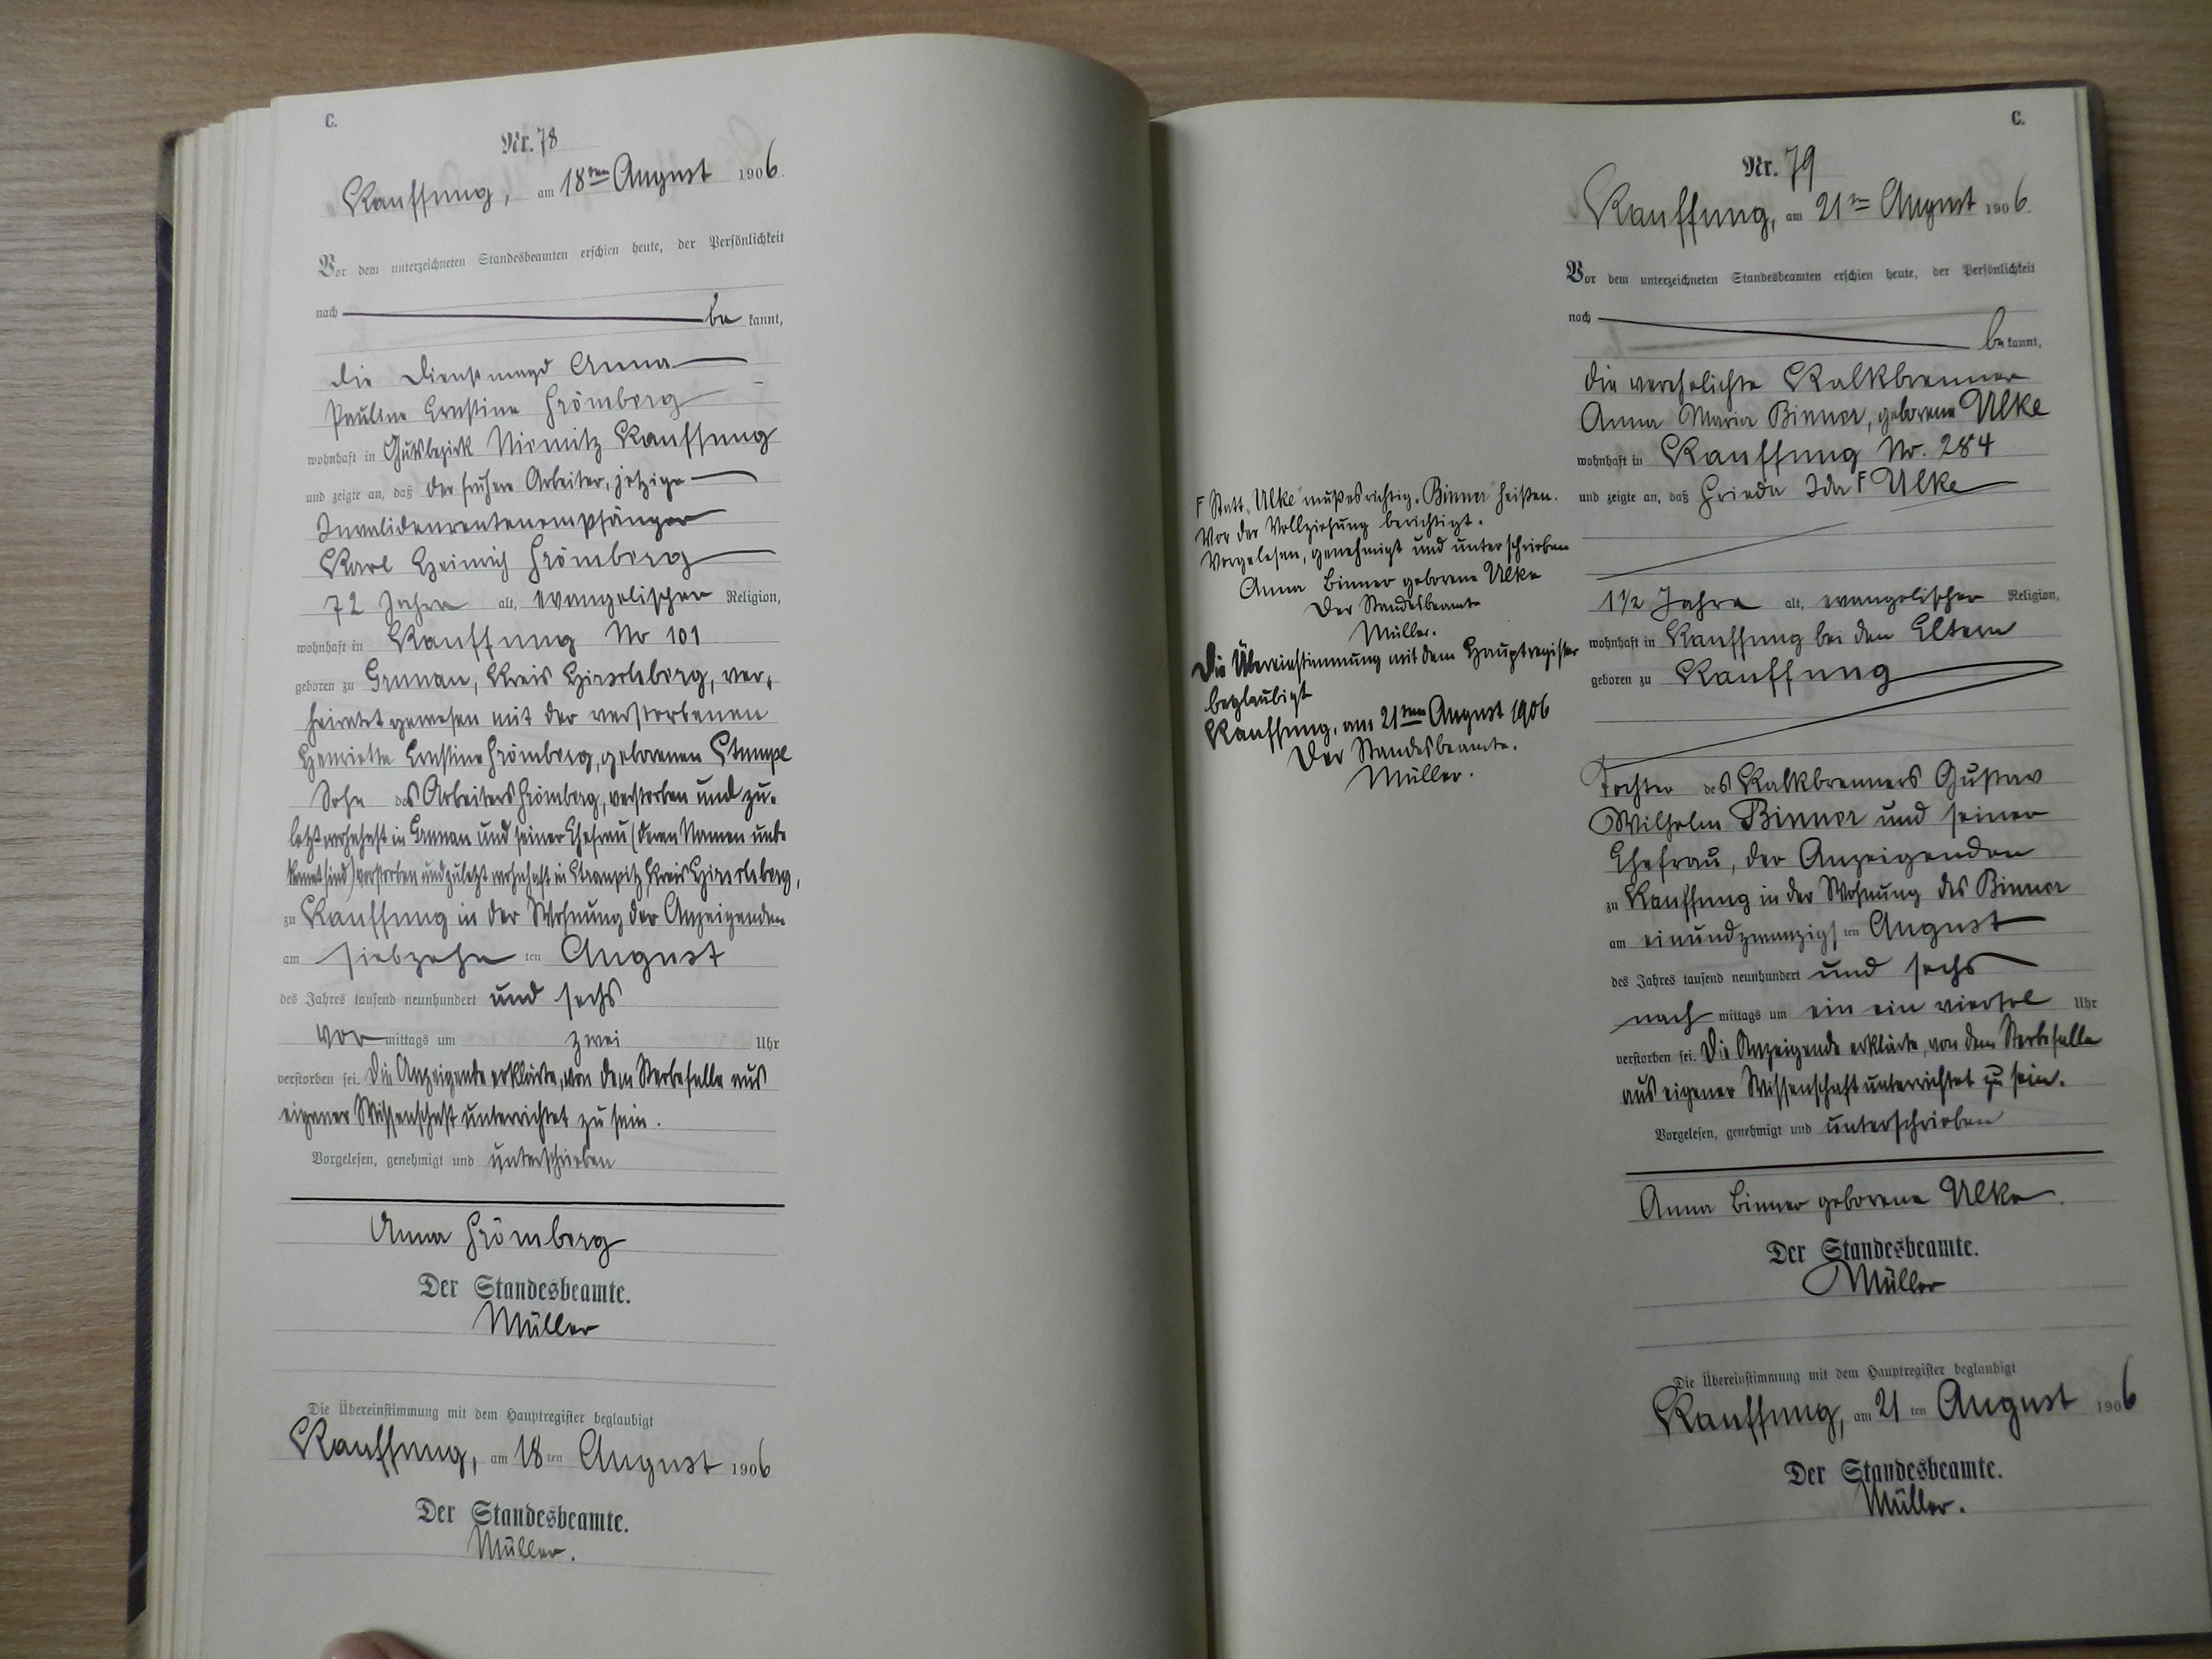 C.
Nr. 78
Kauffung, am 18ten August 1906.
Vor dem unterzeichneten Standesbeamten erschien heute, der Persönlichkeit
nach be kannt,
die Dienstmagd Anna
Pauline Ernstine Frömberg
wohnhaft in Gutsbezirk Niemitz Kauffung
und zeigte an, daß der frühere Arbeiter, jetzige
Invalidenrentenempfänger
Karl Heinrich Frömberg
72 Jahre alt, evangelischer Religion,
wohnhaft in Kauffung No 101
geboren zu Grunau, Kreis Hirschberg, ver-
heiratet gewesen mit der verstorbenen
Henriette Ernstine Frömberg, geborenen Stumpe
Sohn des Arbeiters Frömberg, verstorben und zu-
letzt wohnhaft in Grunau und seiner Ehefrau (deren Namen unbe
kannt sind) verstorben und zuletzt wohnhaft in Straupitz, Kreis Hirschberg,
zu Kauffung in der Wohnung der Anzeigenden
am siebzehn ten August
des Jahres tausend neunhundert und sechs
vor mittags um zwei Uhr
verstorben sei. Die Anzeigende erklärte, von dem Sterbefalle aus
eigener Wissenschaft unterrichtet zu sein.
Vorgelesen, genehmigt und unterschrieben
Anna Frömberg
Der Standesbeamte.
Müller
Die Übereinstimmung mit dem Hauptregister beglaubigt
Kauffung, am 18 ten August 1906
Der Standesbeamte.
Müller.
C.
Nr. 79
Kauffung, am 21ten August 1906.
Vor dem unterzeichneten Standesbeamten erschien heute, der Persönlichkeit
nach be kannt,
die verehelichte Kalkbrenner
Anna Maria Binner, geborene Ulke
wohnhaft in Kauffung Nr. 284
und zeigte an, daß Frieda Ida F Ulke
1 1/2 Jahre alt, evangelischer Religion,
wohnhaft in Kauffung bei den Eltern
geboren zu Kauffung
Tochter des Kalkbrenners Gustav
Wilhelm Binner und seiner
Ehefrau, der Anzeigenden
zu Kauffung in der Wohnung des Binner
am einundzwanzigs ten August
des Jahres tausend neunhundert und sechs
nach mittags um ein ein viertel Uhr
verstorben sei. Die Anzeigende erklärte, von dem Sterbefalle
aus eigener Wissenschaft unterrichtet zu sein.
Vorgelesen, genehmigt und unterschrieben
Anna Binner geborene Ulke.
Der Standesbeamte.
Müller
Die Übereinstimmung mit dem Hauptregister beglaubigt
Kauffung, am 21 ten August 1906
Der Standesbeamte.
Müller.
F Statt "Ulke" muß es richtig "Binner" heißen.
Vor der Vollziehung berichtigt.
Vorgelesen, genehmigt und unterschrieben
Anna Binner geborene Ulke
Der Standesbeamte
Müller.
Die Übereinstimmung mit dem Hauptregister
beglaubigt
Kauffung, am 21ten August 1906
Der Standesbeamte.
Müller.